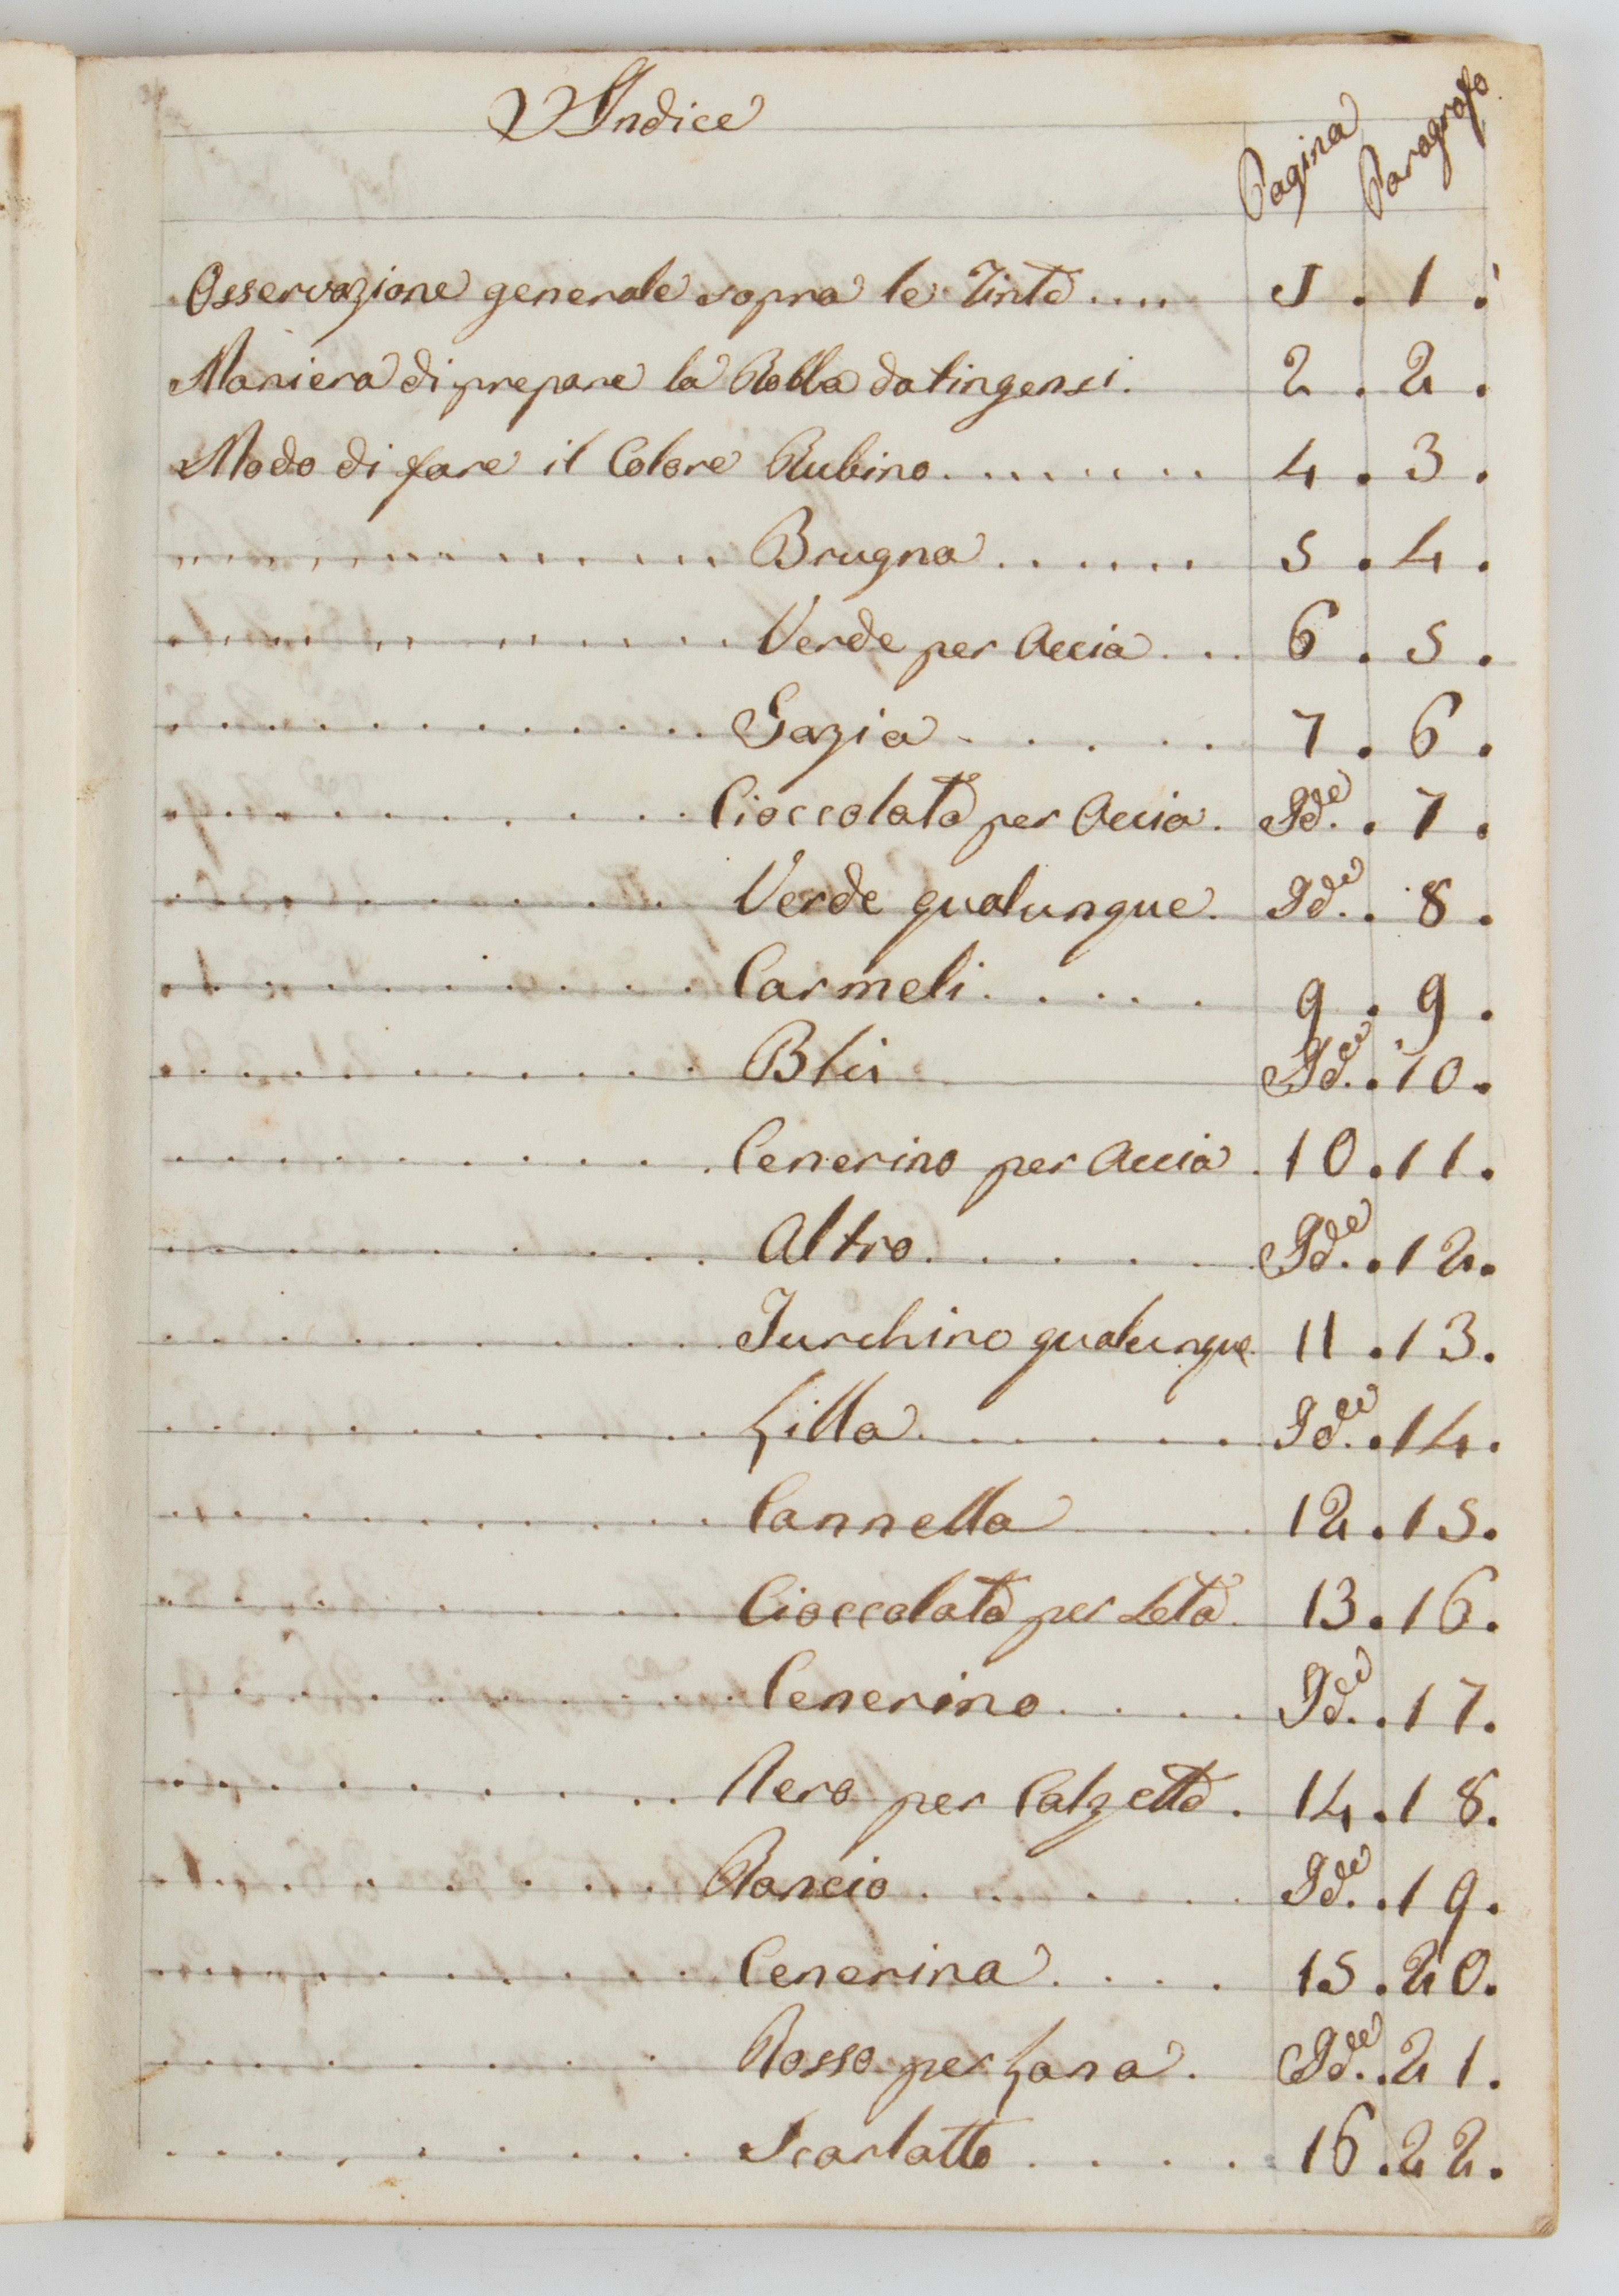 Indice
Pagina Paragrafo
Osservazione generale sopra le Tinte .... 1 . 1 .
Maniera di prepare la Robba da tingersi. 2 . 2 .
Modo di fare il Colore Rubino ........ 4 . 3 .
............ Brugna ...... 5 . 4 .
............ Verde per Accia ... 6 . 5 .
............ Gazia ..... 7 . 6 .
............ Cioccolata per Accia. Id.e . 7 .
............ Verde qualunque. Id.e . 8 .
............ Carmeli ..... 9 . 9 .
............ Blù Id.e . 10 .
............ Cenerino per Accia . 10 . 11 .
............ Altro ..... Id.e . 12 .
............ Turchino qualunque 11 . 13 .
............ Lilla ...... Id.e . 14 .
............ Cannella .. 12 . 15 .
............ Cioccolata per Seta 13 . 16 .
............ Cenerino .... Id.e . 17 .
............ Nero per Calzette . 14 . 18 .
............ Rancio ..... Id.e . 19 .
............ Cenerina .... 15 . 20 .
............ Rosso per Lana . Id.e . 21 .
............ Scarlatto .... 16 . 22 .